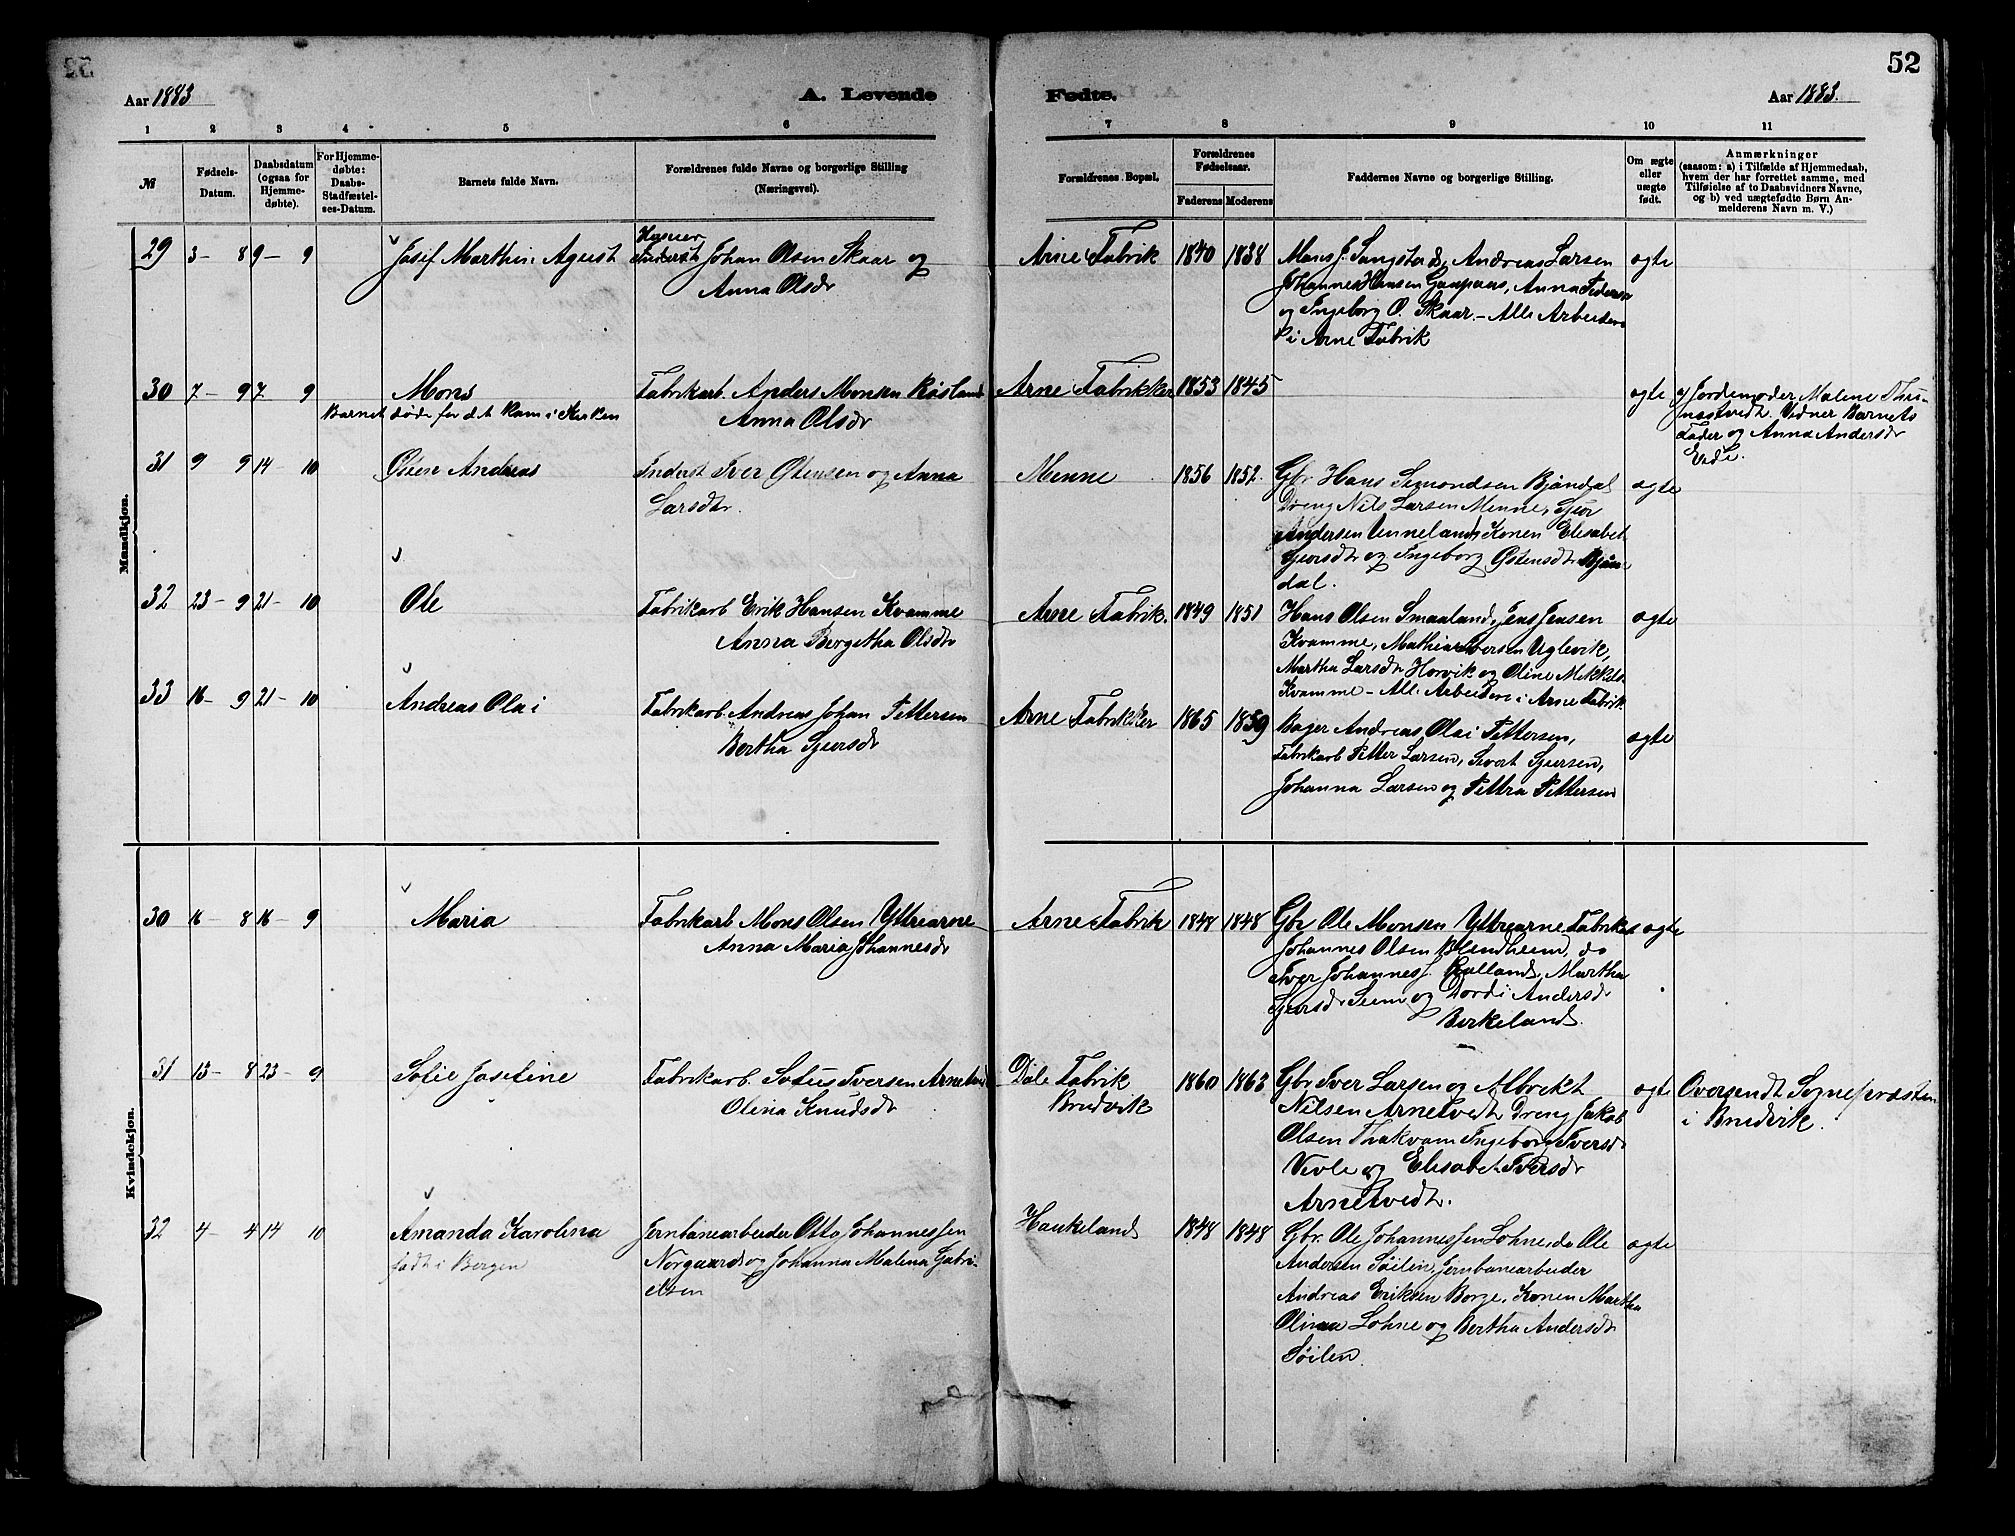 52
Aar 1883
A. Levende
Fødte.
Aar 1883.
1 2 3 4 5 6 7 8 9 10 11
№
Fødsels-
Datum.
Daabsdatum
(ogsaa for
Hjemme-
døbte).
For Hjemme-
døbte:
Daabs-
Stadfæstel-
ses-Datum.
Barnets fulde Navn.
Forældrenes fulde Navne og borgerlige Stilling
(Næringsvei).
Forældrenes Bopæl.
Forældrenes
Fødselsaar.
Faderens Moderens
Faddernes Navne og borgerlige Stilling.
Om ægte
eller
uægte
født.
Anmærkninger
(saasom: a) i Tilfælde af Hjemmedaab,
hvem der har forrettet samme, med
Tilføielse af to Daabsvidners Navne,
og b) ved uægtefødte Børn An-
melderens Navn m. V.)
Mandkjøn.
29 3 - 8 9 - 9
Josef Marthin Agust
Inderst Johan Olsen Skaar og
Anna Olsdr
Arne Fabrik 1840 1838
Mons J. Langstad, Andreas Larsen
Johannes Hansen, Anna Peders
og Ingeborg O. Skaar - Alle Arbeidere
i Arne Fabrik
ægte
30 7 - 9 7 9
Mons
Barnet døde før det kom i Kirken
Fabrikarb. Anders Monsen Røsland
Anna Olsdr
Arne Fabrikker 1853 1845
ægte
a) Jordemoder Malene
Vidner Barnets
Fader og Anna Andersdr
31 9 9 14 - 10
Østen Andreas
Inderst Iver Østensen og Anna
Larsdtr.
Menne 1856 1852.
Gbr. Hans Simondsen Bjøndal
Dreng Nils Larsen Menne, Sjur
Andersen Unneland, Konen Elisabet
Sjursdtr og Ingeborg Østensdtr Bjøn-
dal.
ægte
32 23 - 9 21 - 10
Ole
Fabrikarb Erik Hansen Kvamme
Anna Bergitha Olsdtr
Arne Fabrik. 1849 1851
Hans Olsen Smaaland, Jens Jensen
Kvamme, Mathias Iversen Uglevik,
Martha Larsdtr Horvik og Oline Mikkels
Kvamme - Alle Arbeidere i Arne Fabrik
ægte
33 16 - 9 21 - 10
Andreas Olai
Fabrikarb. Andreas Johan Pettersen
Bertha Sjursdr
Arne Fabrikker 1865 1859
Bager Andreas Olai Pettersen,
Fabrikarb Petter Larsen, Sivert Sjursen,
Johanna Larsen og Pettra Pettersen
ægte
Kvindekjøn.
30 16 - 8 16 - 9
Maria
Fabrikarb Mons Olsen Yttrearne
Anna Maria Johannesdr
Arne Fabrik 1848 1848
Gbr Ole Monsen Yttrearne Fabrika
Johannes Olsen Blendheim, do
Iver Johannes J. Halland, Martha
Sjursdr Seim og Dordi Andersdr
Birkeland.
ægte
31 13 - 8 23 - 9
Sofie Josefine
Fabrikarb. Sofus Iversen Arnetvedt
Olina Knudsdr
Dale Fabrik
Bruvik
1860 1863
Gbr Iver Larsen og Albrekt
Nilsen Arnetvedt, Dreng Jakob
Olsen Thakvam Ingeborg Iversdr
Vevle og Elisabet Iversdr
Arnetvedt.
ægte
Oversendt Sognepræsten
i Bruvik.
32 4 - 4 14 10
Amanda Karolina
født i Bergen
Jernbanearbeider Otto Johannessen
Norgaard og Johanna Malena Gabri-
elsen
Haukeland 1848 1848
Gbr. Ole Johannessen Lohne, do Ole
Andersen Søilen, Jernbanearbeider
Andreas Eriksen Borge, Konen Martha
Olina Lohne og Bertha Andersdr
Søilen.
ægte